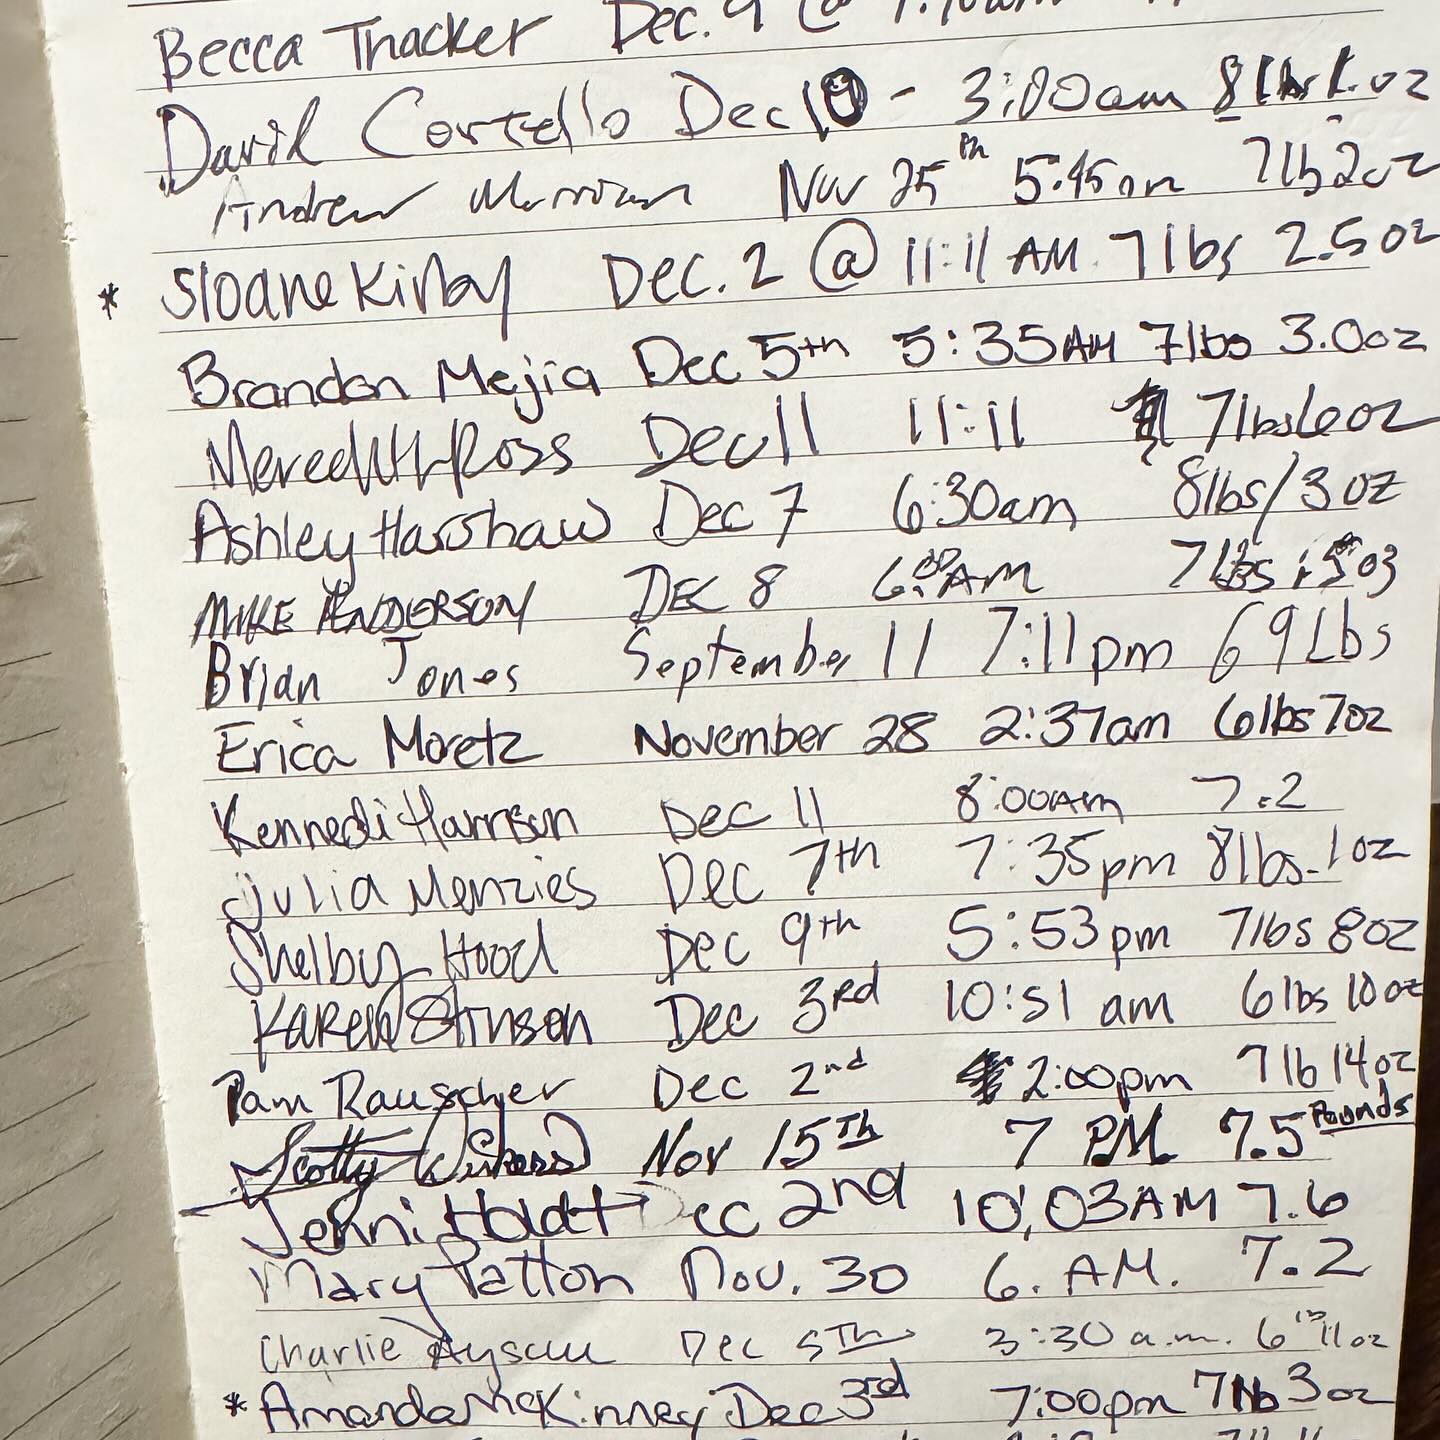 Becca Thacker Dec. 9 @
David Costello Dec 10 - 3:00am 8 lbs 1.oz
Andrew Nov 25th 5:45am 7lb 2oz
* Sloane Kirby Dec. 2 @ 11:11 AM 7lbs 2.5oz
Brandon Mejia Dec 5th 5:35AM 7lbs 3.0oz
Meredith Ross Dec 11 11:11 7lbs 6oz
Ashley Harshaw Dec 7 6:30am 8lbs/3oz
MIKE ANDERSON DEC 8 6:00AM 7 LBS
Brian Jones September 11 7:11pm 69 Lbs
Erica Moretz November 28 2:37am 6lbs 7oz
Kennedi Harrison Dec 11 8:00AM 7.2
Julia Menzies Dec 7th 7:35pm 8lbs-1oz
Shelby Hood Dec 9th 5:53pm 7lbs 8oz
Karen Stinson Dec 3rd 10:51 am 6lbs 10oz
Pam Rauscher Dec 2nd 2:00pm 7lb 14oz
Scotty Nov 15TH 7 PM 7.5 Pounds
Jenni Holdt Dec 2nd 10:03AM 7.6
Mary Patton Nov. 30 6. AM. 7.2
Charlie Ayscue Dec 5TH 3:30 a.m. 6lb 11oz
* Amanda McKinney Dec 3rd 7:00pm 7lb 3oz